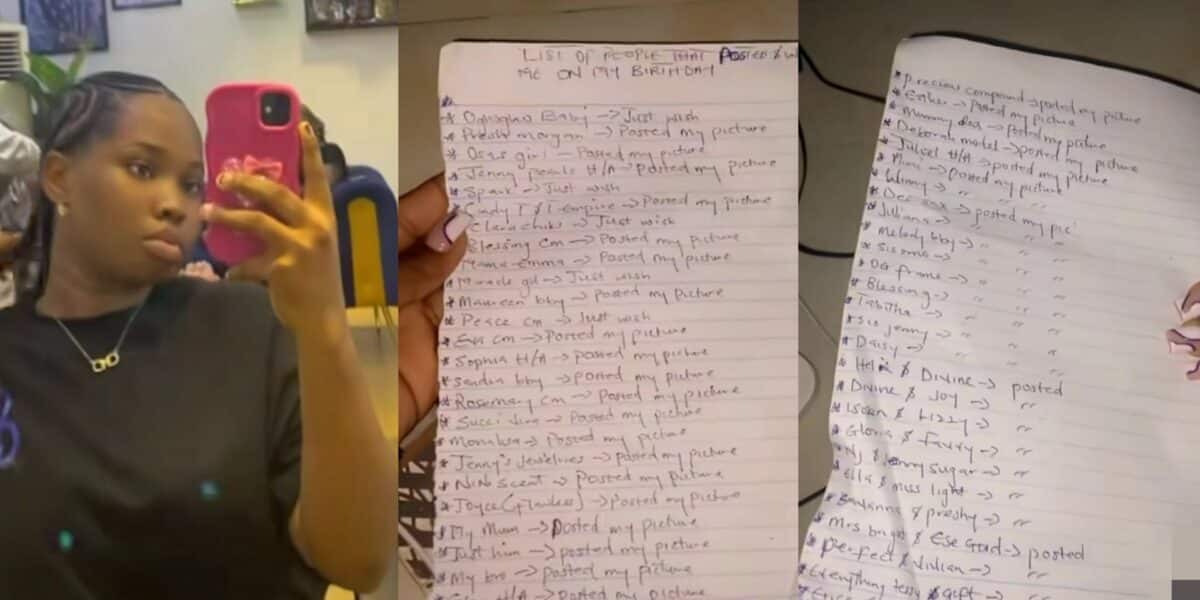 LIST OF PEOPLE THAT POSTED & W
ME ON MY BIRTHDAY
* Baby -> Just wish
* Preshi morgan -> Posted my picture
* Osas girl - Posted my picture
* Jenny H/A -> Posted my picture
* Spark -> Just wish
* Cindy empire -> Posted my picture
Clara chiks -> Just wish
Blessing cm -> Posted my picture
Mama emma -> Posted my picture
* Miracle gd -> Just wish
* Maureen bby -> Posted my Picture
* Peace cm -> Just wish
* cm -> Posted my picture
* Sophia H/A -> posted my picture
* Sandra bby -> posted my picture
* Rosemary cm -> Posted my picture
* Posted my picture
* -> Posted my picture
* Jenny's Jewelries -> posted my picture
* Nino Scent -> Posted my Picture
* Joyce -> posted my picture
* My Mum -> posted my picture
* Just him -> posted my picture
* My bro -> posted my picture
H/A -> posted my picture
* Precious compound -> posted my picture
* Esther -> Posted my picture
* Mummy -> posted my picture
* Deborah model -> posted my picture
* H/A -> posted my picture
* -> posted my picture
* Winny -> " " "
* -> posted my pic
* Juliana -> " " "
* Melody bby -> " " "
* Sis -> " " "
* OG frame -> " " "
* Blessing -> " " "
* Tabitha -> " " "
* Sis Jenny -> " " "
* Daisy -> " " "
* & Divine -> posted
* Divine & Joy -> "
* & Lizzy -> "
* Gloria & Favvy -> "
* & sugar -> "
* Ella & miss light -> "
* & preshy -> "
* Mrs bright & Ese God -> posted
* Perfect & Vivian -> "
* Everything tessy & gift -> "